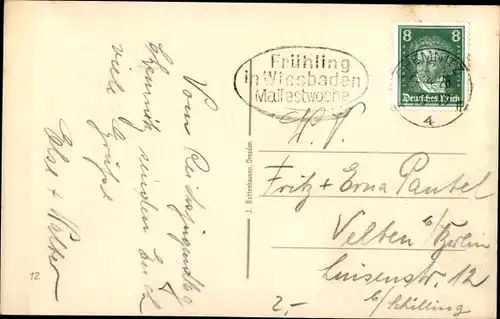 Frühling
in Wiesbaden
Maifestwoche
8 8
Deutsches Reich
CHEMNITZ
4
Vom Reichsjugendtag
Chemnitz senden Euch
viele Grüße
Else + Walter
12.
J. Bettenhausen, Dresden.
Fritz + Erna Pantel
Velten b/Berlin
Luisenstr. 12
b/Schilling
2,-